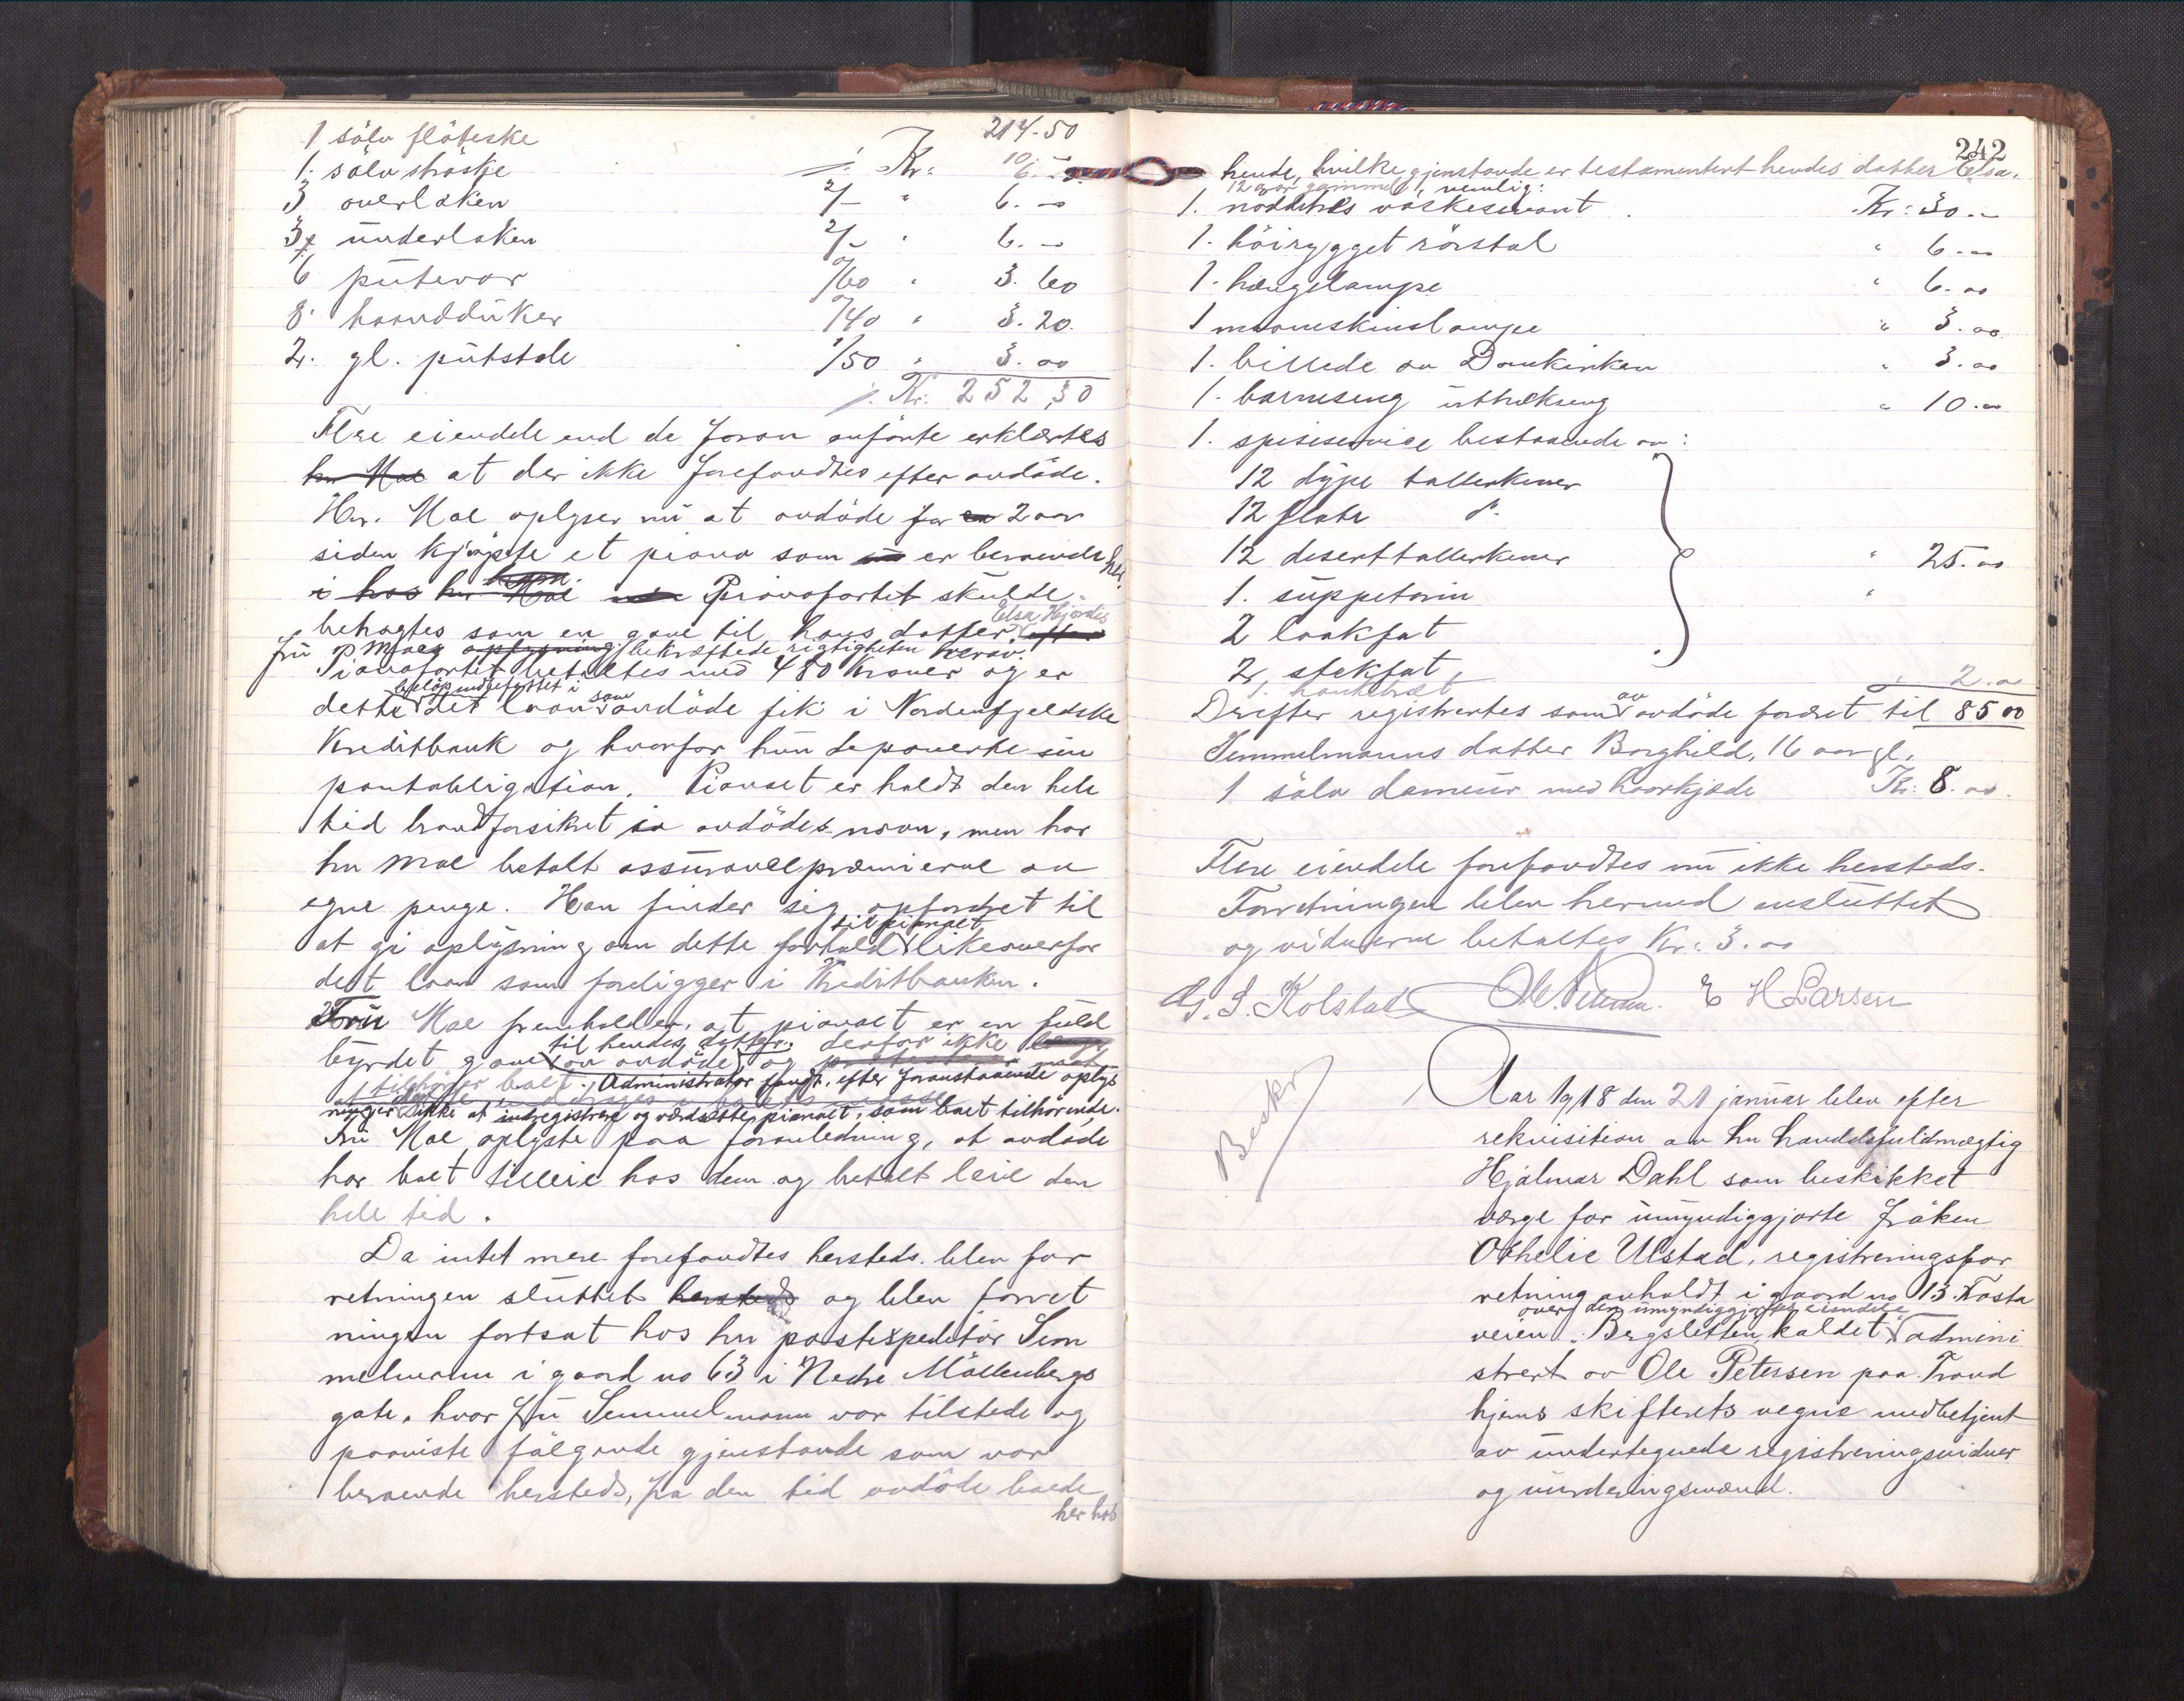 214-50
1 sölv flöteske
1. sölv ströske ./. Kr: 10.-
3 overlaken 2/- " 6.-
3 underlaken 2/- " 6.-
6 putevar /60 " 3.60
8. haandduker /40 " 3.20.
2. gl. putstole 1/50 " 3.00
./. Kr. 252,30
Flere eiendele end de foran anförte erklærtes
hr Moe at der ikke forefandtes efter avdöde.
Hr. Moe oplyser nu at avdöde for en 2 aar
siden kjöpte et piano som er beroende her
i hos hr Moe Pianofortet skulde
betragtes som en gave til hans datter Elsa Hjördis
fru Moes oplysning bekræftede rigtigheten herav.
Pianofortet betaltes med 480 kroner og er
beløp indbefattet i som
dette det laan avdöde fik i Nordenfjeldske
Kreditbank og hvorfor hun deponerte sin
pantobligation. Pianoet er holdt den hele
tid brandforsikret i avdödes navn, men har
hr Moe betalt assurancepræmierne av
egne penge. Han finder sig opfordret til
til pianoet
at gi oplysning om dette forhold likeoverfor
det laan som foreligger i Kreditbanken.
Fru Moe fremholder, at pianoet er en fuld
til hendes datter, derfor ikke
byrdet gave av avdöde og
tilhörer boet. Administrator fandt, efter foranstaaende oplys
ninger ikke at indregistrere og værdsætte pianoet, som boet tilhörende.
Fru Moe oplyste paa foranledning, at avdöde
har boet tilleie hos dem og betalt leie den
hele tid.
Da intet mere forefandtes hersteds blev for
retningen sluttet hersteds og blev forret
ningen fortsat hos hr postexpeditör Sem
melmann i gaard no 63 i Nedre Möllenbergs
gate, hvor fru Semmelmann var tilstede og
paaviste fölgende gjenstande som var
beroende hersteds, fra den tid avdöde boede
her hos
242
hende, hvilke gjenstande er testamentert hendes datter Elsa,
12 aar gammel, nemlig:
1. nöddetræs vaskeservant Kr: 30.-
1. höirygget rörstol " 6.-
1. hængelampe " 6.00
1 maaneskinslampe " 3.00
1. billede av Domkirken " 3.00
1. barneseng uttrækseng " 10.00
1. spiseservice bestaaende av:
12 dype tallerkener
12 flate d°
12 deserttallerkener " 25.00
1. suppeterin "
2 laakfat
2 stekfat
2.00
Derefter registrertes som av avdöde foræret til 85 00
Semmelmanns datter Borghild, 16 aar gl.
1 sölv dameur med haarkjæde Kr: 8.00.
Flere eiendele forefandtes nu ikke hersteds.
Forretningen blev hermed avsluttet
og vidnerne betaltes Kr: 3.00
G. S. Kolstad E H Larsen
Aar 1918 den 21 januar blev efter
rekvisition av hr handelsfuldmægtig
Hjalmar Dahl som beskikket
værge for umyndiggjorte fröken
Othelie Ulstad, registreringsfor
retning avholdt i gaard no 13.
over den umyndiggjortes eiendele
veien "Bergsletten" kaldet admini
strert av Ole Petersen paa Trond
hjems skifterets vegne medbetjent
av undertegnede registreringsvidner
og vurderingsmænd.